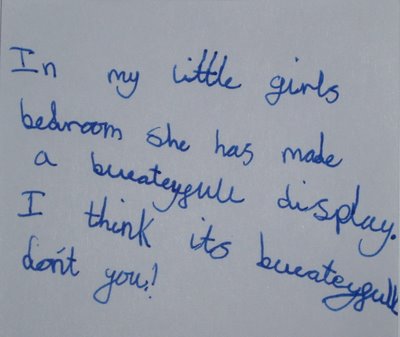 In my little girls
bedroom she has made
a bueateygull display.
I think its bueateygull
don't you!